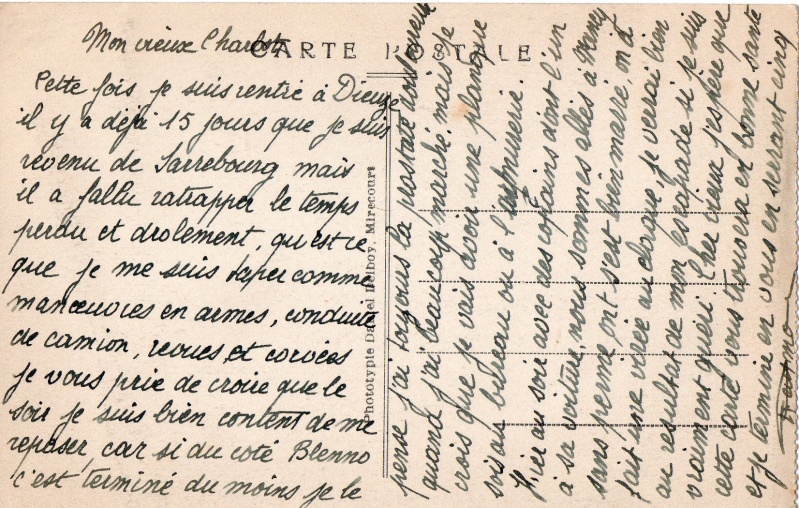 Mon vieux Charlot
CARTE POSTALE
Cette fois je suis rentré à Dieuze
il y a déjà 15 jours que je suis
revenu de Sarrebourg mais
il a fallu ratrapper le temps
perdu et drolement, qu'est ce
que je me suis taper comme
manoeuvres en armes, conduite
de camion, revues et corvées
je vous prie de croie que le
soir je suis bien content de me
reposer, car si du coté Blenno
c'est terminé du moins je le
Phototypie Daniel Delboy, Mirecourt
pense j'ai toujours la prostate douloureuse
quand j'ai beaucoup marché, mais je
crois que je vais avoir une planque
soit au bureau ou à l'armurerie.
Hier au soir avec des copains dont l'un
à sa voiture, nous sommes allés à Nancy
sans perme, on s'est bien marré, on à
fait une virée au claque, je verrai bien
au resultat de mon escapade si je suis
vraiment guéri. Cher vieux j'espère que
cette carte vous trouvera en bonne santé
et je termine en vous en serrant cinq